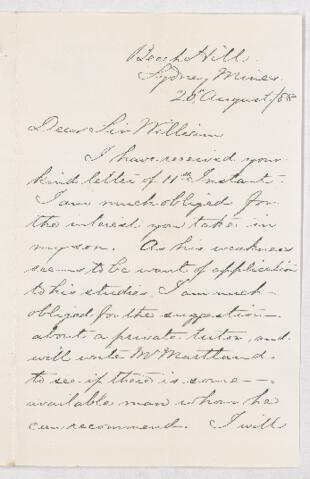 Beech Hill
Sydney Mines
20 August/88
Dear Sir William
I have received your
kind letter of 11th Instant.
I am much obliged for
the interest you take in
my son. As his weakness
seems to be want of application
to his studies, I am much
obliged for the suggestion
about a private tutor, and
will write Mr Maitland
to see if there is some
available man whom he
can recommend. I will